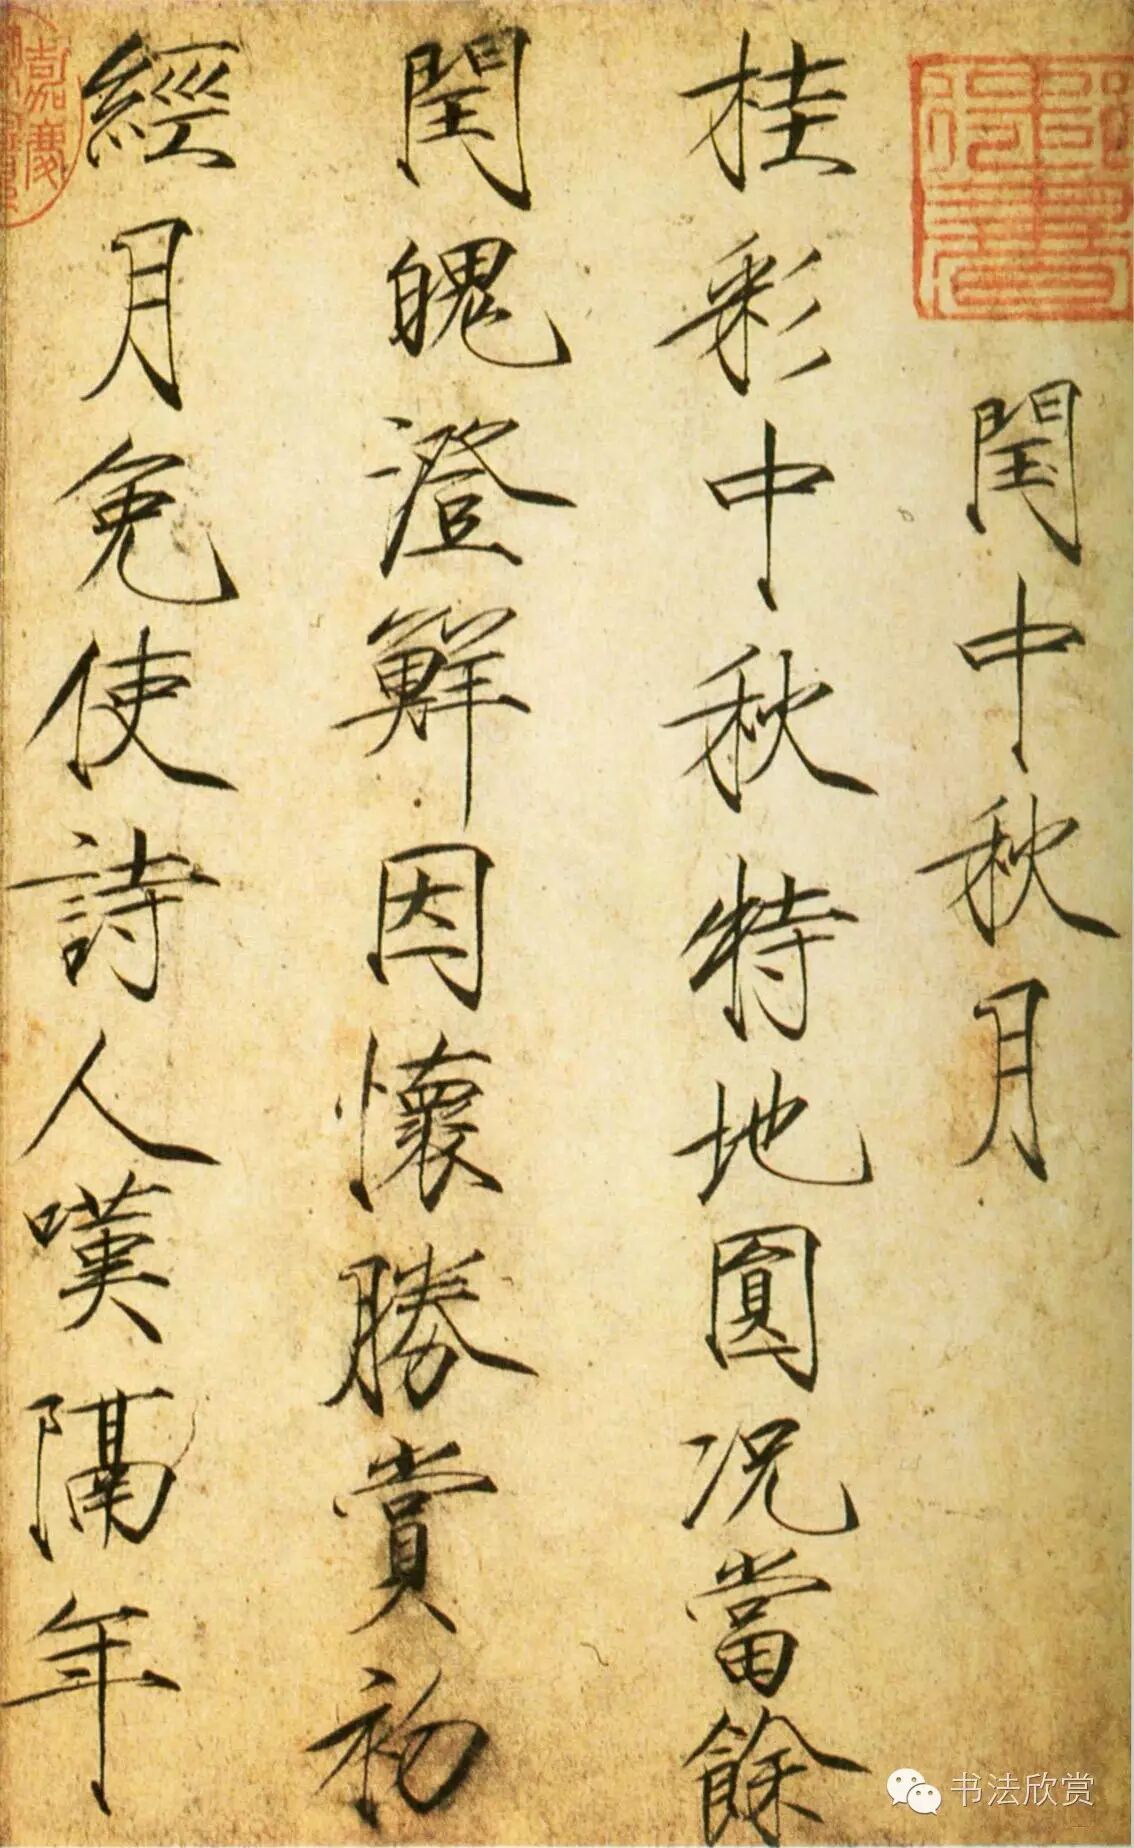 閏中秋月
桂彩中秋特地圓况當餘
閏魄澄鮮因懷勝賞初
經月免使詩人嘆隔年
嘉慶
书法欣赏